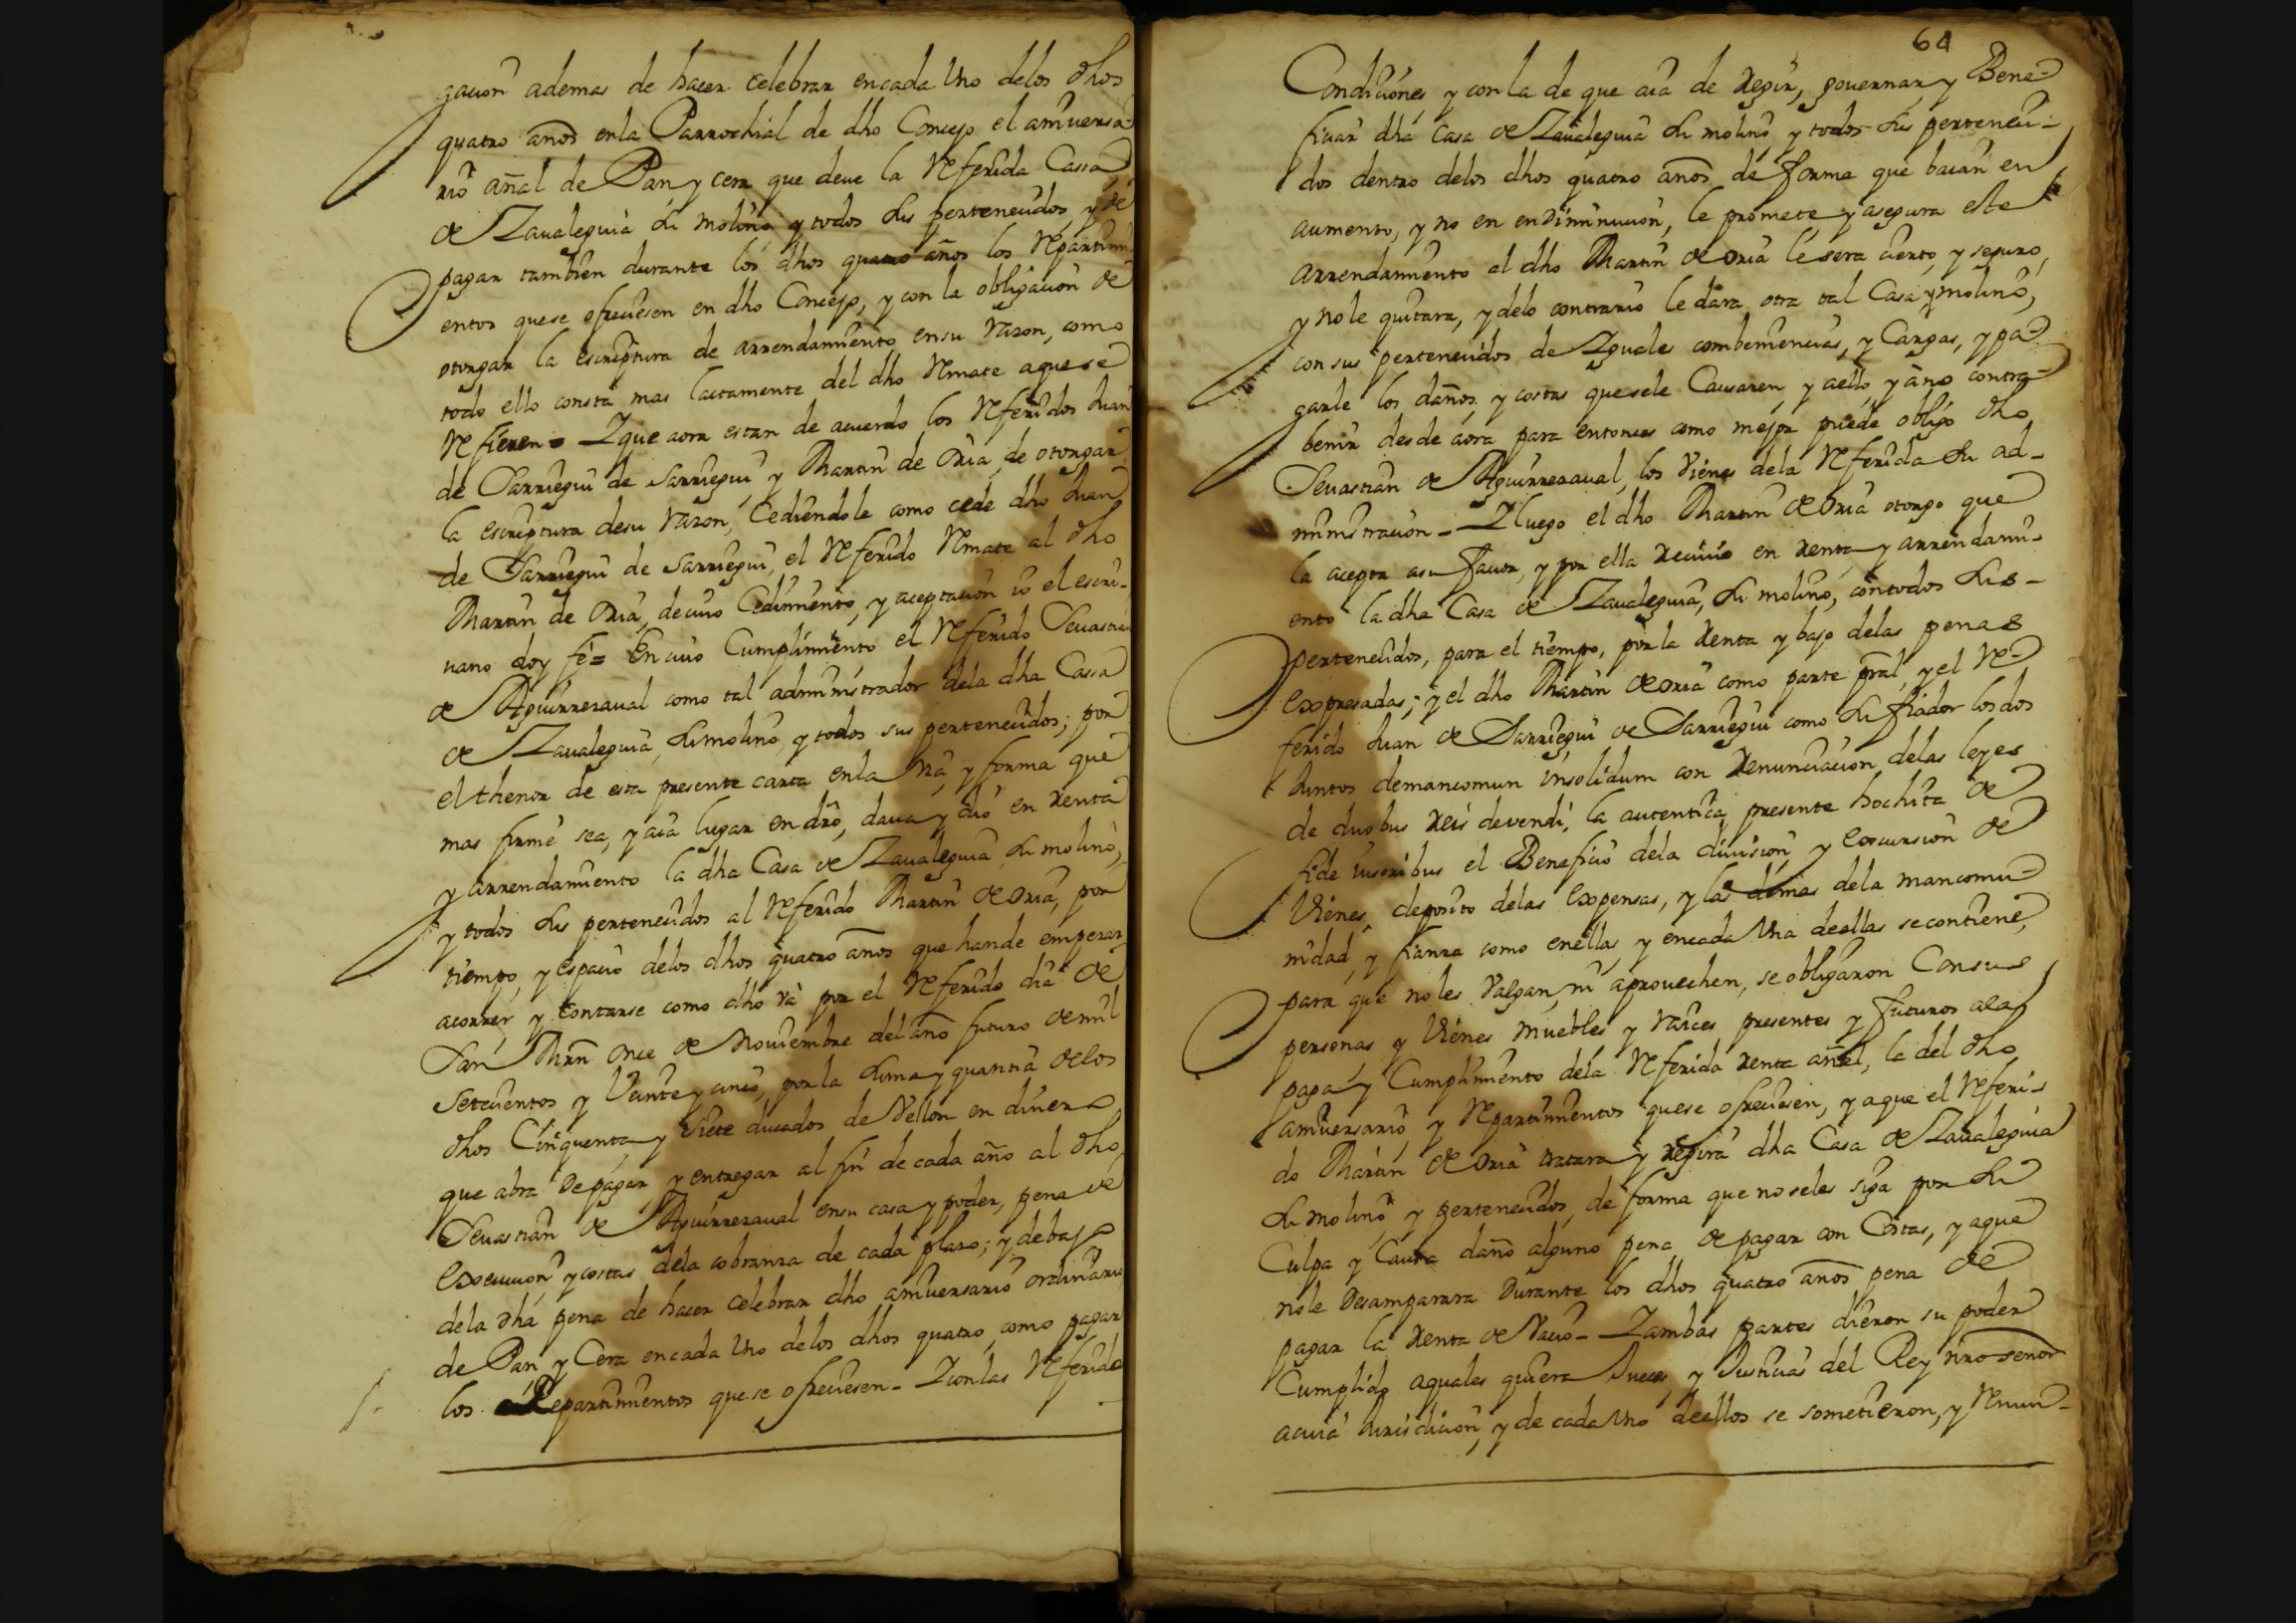 gacion ademas de hacer celebrar encada Uno delos dhos
quatro años enla Parrochial de dho Concejo el aniversa-
rio añal de Pan y cera que deve la Referida Cassa
de Zavaleguia su molino y todos sus pertenecidos, y de
pagar tambien durante los dhos quatro años los Repartimi-
entos quese ofreciesen en dho Concejo, y con la obligacion de
otorgar la escriptura de arrendamiento ensu razon, como
todo ello consta mas lactamente del dho Remate aquese
Refieren = Yque aora estan de acuerdo los Referidos Juan
de Sarriegui de Sarriegui y Martin de Oria de otorgar
la escriptura desu razon, Cediendole como cede dho Juan
de Sarriegui de Sarriegui, el Referido Remate al dho
Martin de Oria, decuio Cedimiento, y aceptacion io el escri-
vano doy fe = En cuio Cumplimiento el Referido Sevastian
de Aguirrezaval como tal administrador dela dha Cassa
de Zavaleguia, su molino, y todos sus pertenecidos; por
el thenor de esta presente carta enla via, y forma que
mas firme sea, y aia lugar en dro, dava y dio en renta
y arrendamiento la dha Casa de Zavaleguia su molino,
y todos sus pertenecidos al Referido Martin de Oria, por
tiempo, y espacio delos dhos quatro años que hande empezar
acorrer, y contarse como dho va por el Referido dia de
San Mrn Once de Noviembre del año futuro de mil
Setecientos y Veinte y cinco, por la suma y quantia delos
dhos Cinquenta y siete ducados de Vellon en dinero
que abra de pagar, y entregar al fin de cada año al dho
Sevastian de Aguirrezaval ensu casa y poder, pena de
Execucion, y costas dela cobranza de cada plazo; y debajo
dela dha pena de hacer celebrar dho aniversario ordinario
de Pan, y Cera encada Uno delos dhos quatro, como pagar
los Repartimientos quese ofreciesen - Y con las Referidas
64
Condiciones y con la de que aia de Regir, governar, y Bene-
ficiar dha Casa de Zavaleguia su molino, y todos sus perteneci-
dos dentro delos dhos quatro años de forma que baian en
aumento, y no en endiminucion, le promete, y asegura este
arrendamiento al dho Martin de Oria le sera cierto, y seguro,
y nole quitara, y delo contrario le dara otra tal Casa y molino,
con sus pertenecidos de Yguales combeniencias, y Cargas, y pa-
garle los daños, y costas quesele Causaren, y aello, y ano contra-
benir desde aora para entonces como mejor puede obligo dho
Sevastian de Aguirrezaval, los Vienes dela Referida su ad-
ministracion - Y luego el dho Martin de Oria otorgo que
la acepta asu favor, y por ella recivio en renta, y arrendami-
ento la dha Casa de Zavaleguia, su molino, contodos sus -
pertenecidos, para el tiempo, por la renta y bajo delas penas
Expresadas; y el dho Martin de Oria como parte pral, y el Re-
ferido Juan de Sarriegui de Sarriegui como su fiador los dos
Juntos demancomun insolidum con renunciacion delas leyes
de duobus reis devendi, la autentica presente hochita de
fide iusoribus el Beneficio dela division, y Excursion de
Vienes, deposito delas Expensas, y las demas dela mancomu-
nidad, y fianza como enellas, y encada Una deellas secontiene,
para que noles valgan, ni aprovechen, se obligaron Consus
personas, y Vienes muebles y raices presentes y futuros ala
paga, y Cumplimiento dela Referida renta añal, la del dho
aniversario, y Repartimientos quese ofreciesen, y aque el Referi-
do Martin de Oria tratara y regira dha Casa de Zavaleguia
su molino, y pertenecidos, de forma que noseles siga por su
Culpa y Causa daño alguno pena de pagar con Costas, y aque
nole Desamparara Durante los dhos quatro años pena de
pagar la renta de Vacio - Y ambas partes dieron su poder
Cumplido aquales quiera Jueces, y Justicias del Rey nro señor
acuia Jurisdicion, y de cada Uno deellos se sometieron, y Renun-